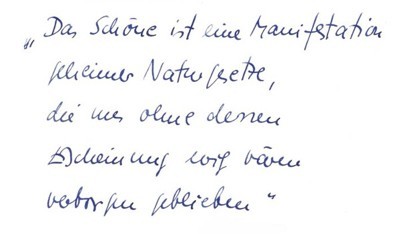 „Das Schöne ist eine Manifestation
geheimer Naturgesetze,
die uns ohne dessen
Erscheinung ewig wären
verborgen geblieben“